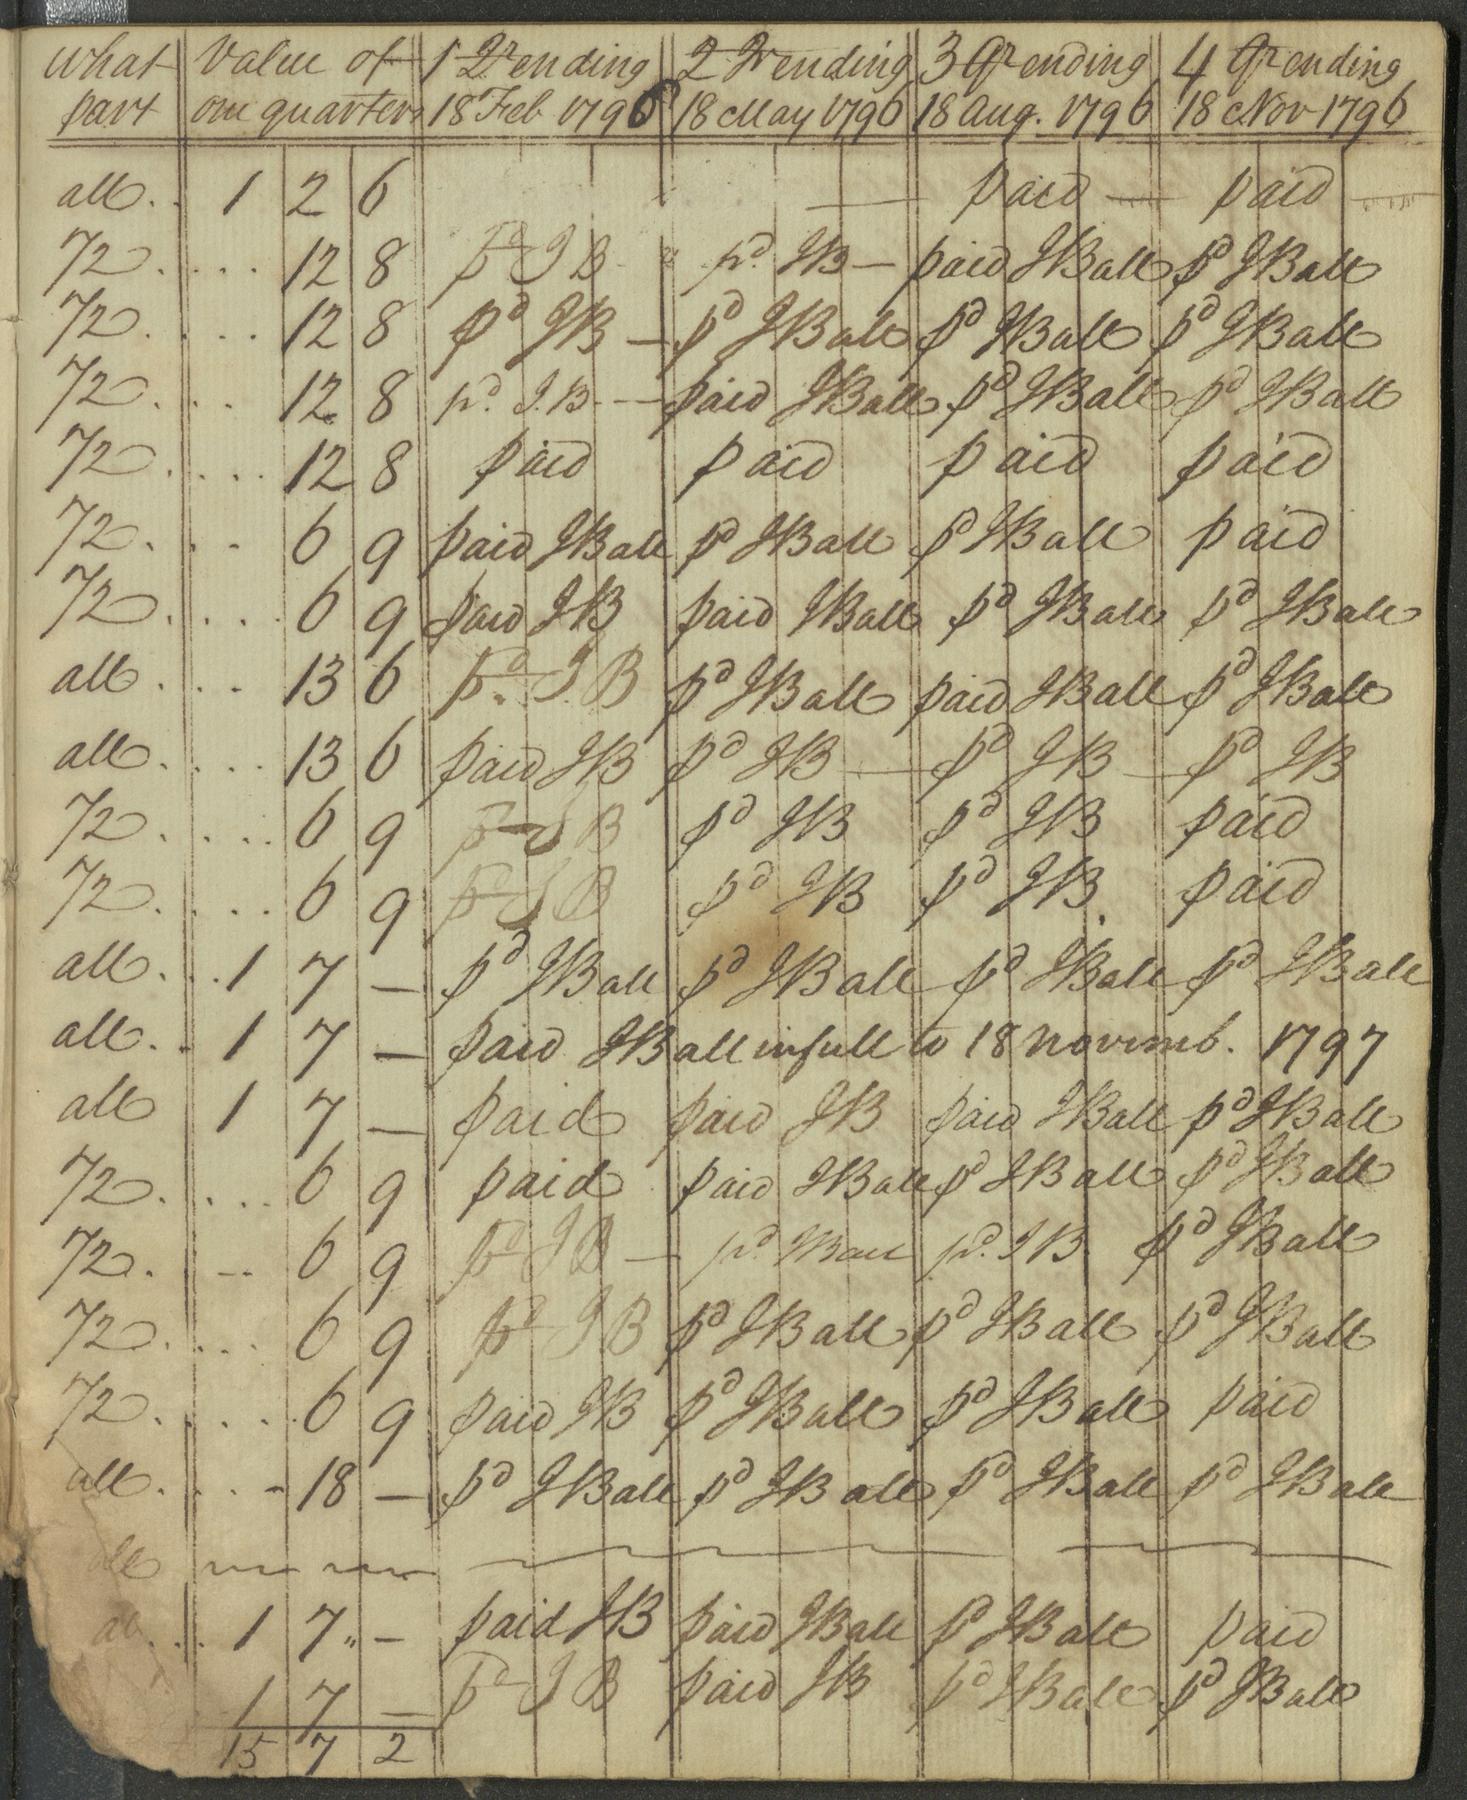 what value of 1 Qr ending 2 Qr ending 3 Qr ending 4 Qr ending
part one quarter 18 Feb 1796 18 May 1796 18 Aug. 1796 18 Nov 1796
all . . 1 2 6 — paid — paid —
72 . . . . 12 8 pd I B pd. JB — paid JBall pd JBall
72 . . . . 12 8 pd JB — pd JBall pd JBall pd JBall
72 . . . 12 8 pd. J.B. — paid JBall pd JBall pd JBall
72 . . . . 12 8 paid paid paid paid
72 . . . 6 9 paid JBall pd JBall pd JBall paid
72 . . . . 6 9 paid JB paid JBall pd JBall pd JBall
all . . . 13 6 pd. I. B pd JBall paid JBall pd JBall
all . . . . 13 6 paid JB pd JB — pd JB — pd JB
72 . . . . 6 9 pd I B pd JB pd JB paid
72 . . . . 6 9 pd I B pd JB pd JB. paid
all . . . 1 7 — pd JBall pd JBall pd JBall pd JBall
all . . 1 7 — paid JBall in full to 18 Novemb. 1797
all 1 7 — paid paid JB paid JBall pd JBall
72 . . . . 6 9 paid paid JBall pd JBall pd JBall
72 . -- 6 9 pd I B — pd. JBall pd. I B pd JBall
72 . . . . 6 9 pd I B pd JBall pd JBall pd JBall
72 . . . . . 6 9 paid JB pd JBall pd JBall paid
all . . . - 18 — pd JBall pd JBall pd JBall pd JBall
all
al . . . 1 7 " – paid JB paid JBall pd JBall paid
1 7 — pd I B paid JB pd JBall pd JBall
15 7 2